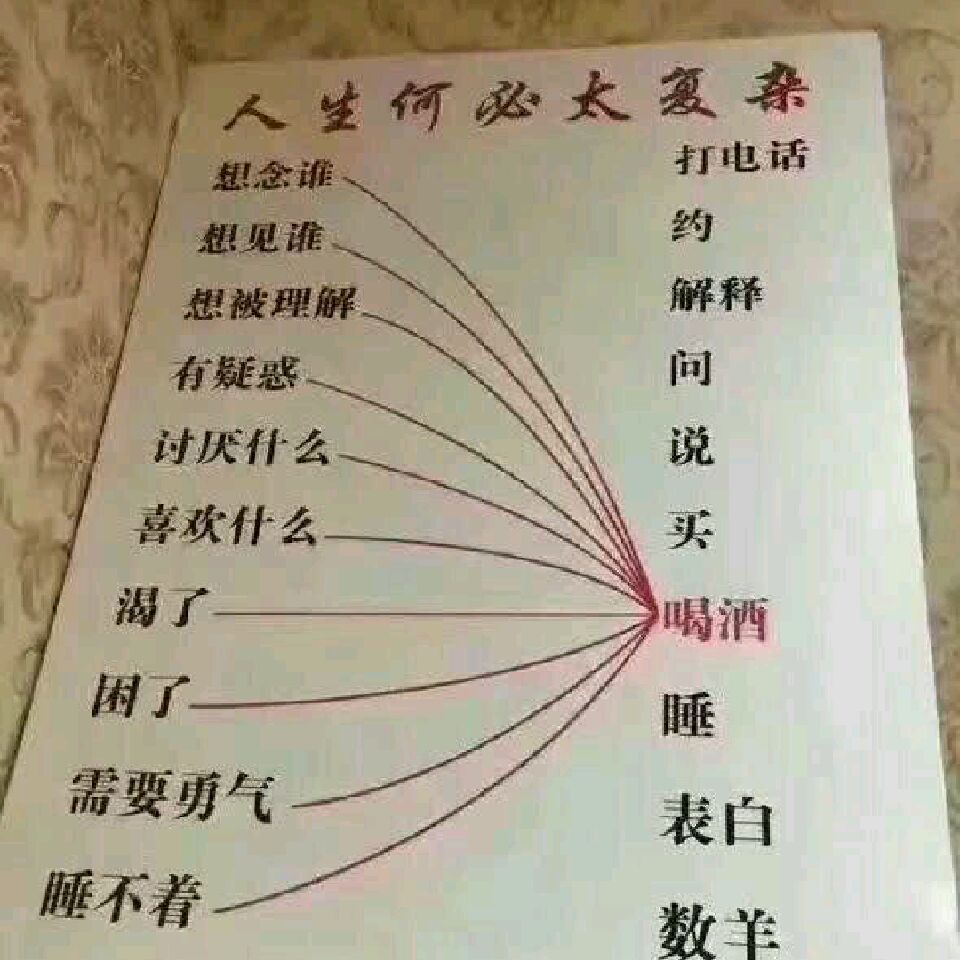 人生何必太复杂
想念谁 打电话
想见谁 约
想被理解 解释
有疑惑 问
讨厌什么 说
喜欢什么 买
渴了 喝酒
困了 睡
需要勇气 表白
睡不着 数羊